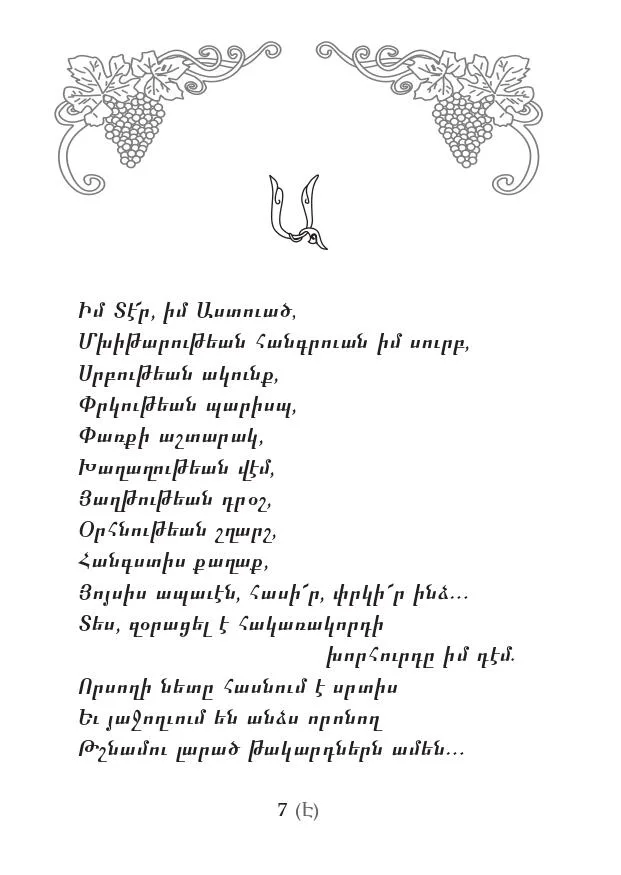 Ա
Իմ Տէ՜ր, իմ Աստուած,
Մխիթարութեան հանգրուան իմ սուրբ,
Սրբութեան ակունք,
Փրկութեան պարիսպ,
Փառքի աշտարակ,
Խաղաղութեան վէմ,
Յաղթութեան դրօշ,
Օրհնութեան շղարշ,
Հանգստիս քաղաք,
Յոյսիս ապաւէն, հասի՜ր, փրկի՜ր ինձ...
Տես, զօրացել է հակառակորդի
խորհուրդը իմ դէմ.
Որսողի նետը հասնում է սրտիս
Եւ յաջողւում են անձս որոնող
Թշնամու լարած թակարդներն ամեն...
7 (Է)